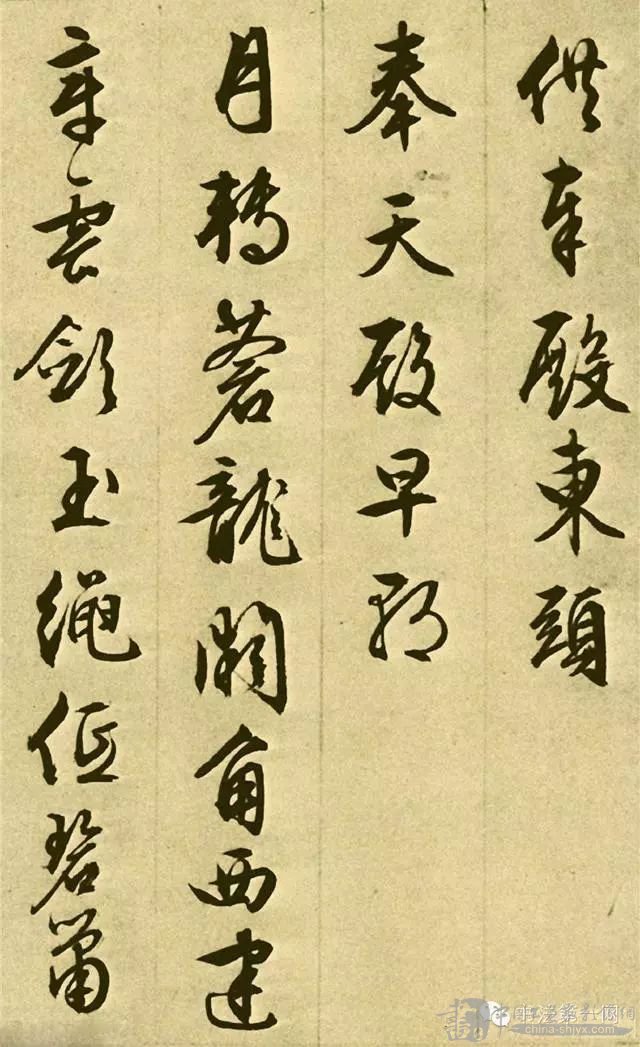 供奉殿東頭
奉天殿早朝
月轉蒼龍闕角西建
章雲斂玉繩低碧簫
china-shjyx.com